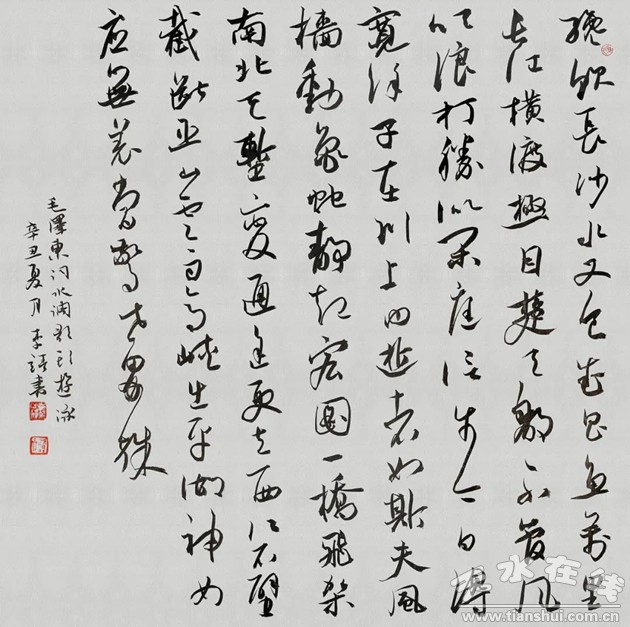 纔飲長沙水又食武昌魚萬里
長江橫渡極目楚天舒不管風
吹浪打勝似閑庭信步今日得
寬餘子在川上曰逝者如斯夫風
檣動龜蛇靜起宏圖一橋飛架
南北天塹變通途更立西江石壁
截斷巫山雲雨高峽出平湖神女
應無恙當驚世界殊
毛澤東詞水調歌頭遊泳
辛丑夏月李書
天水在线
www.tianshui.com.cn